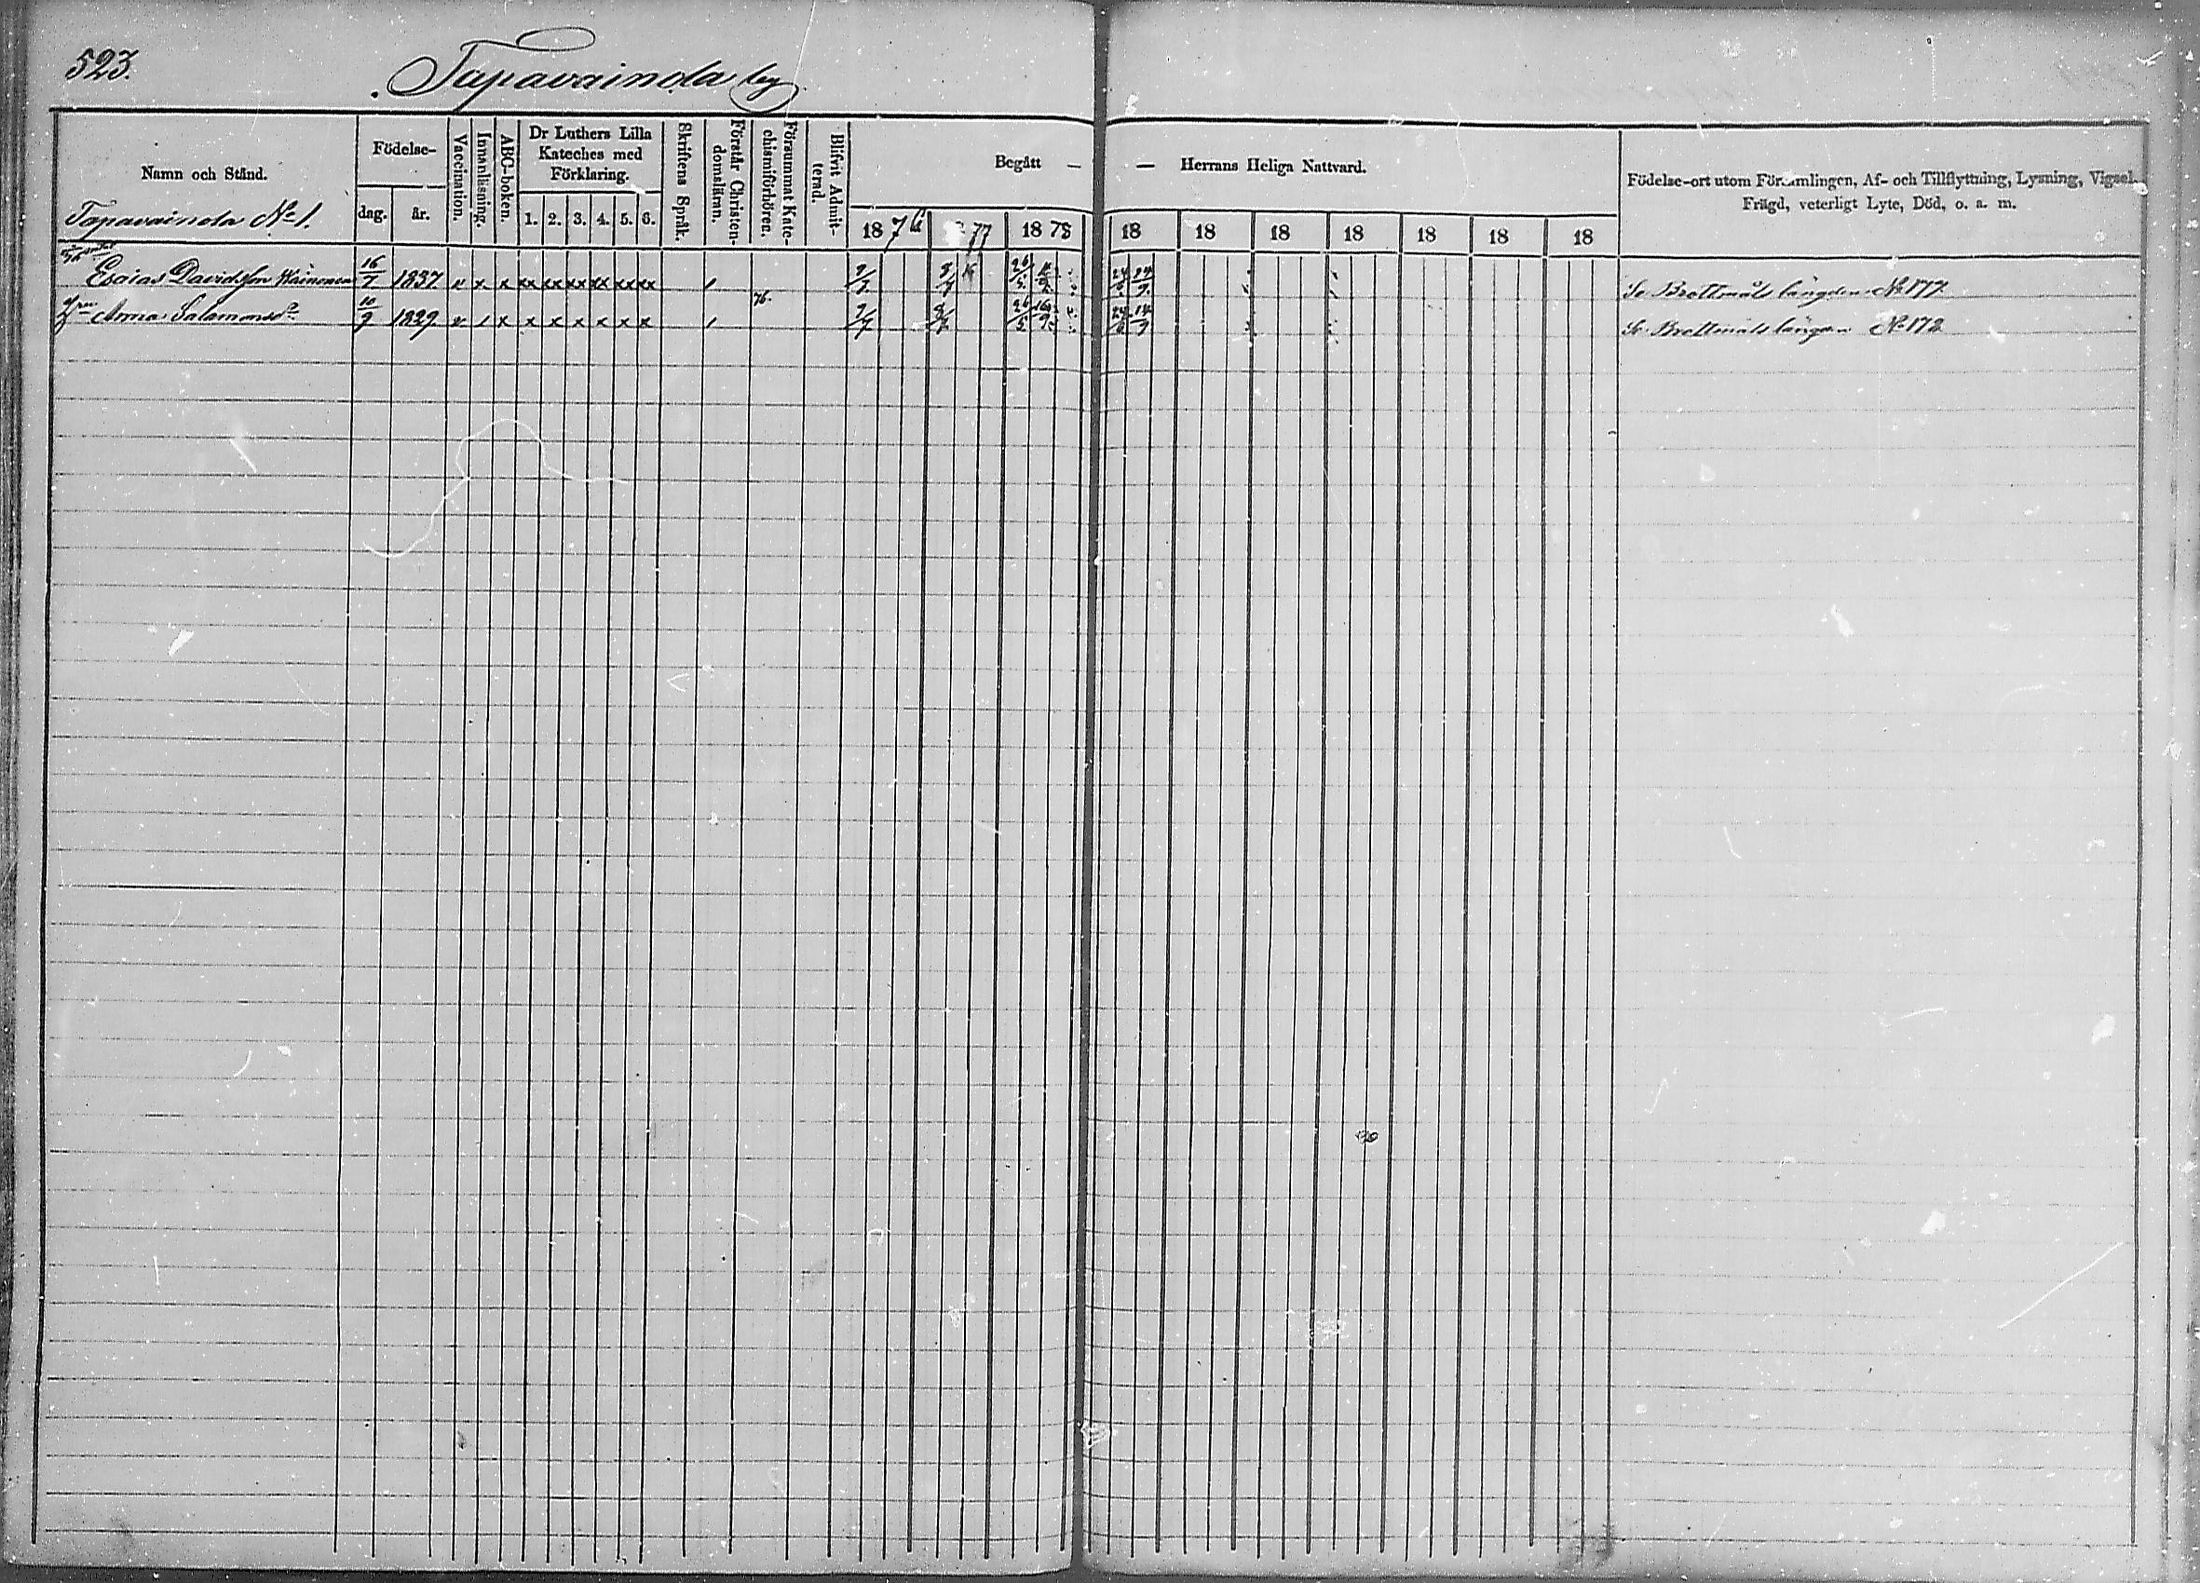 523.
Tapavainola by
Namn och Stånd.
Födelse-
dag. år.
Vaccination.
Innanläsning.
ABC-boken.
Dr Luthers Lilla
Kateches med
Förklaring.
1. 2. 3. 4. 5. 6.
Skriftens Språk.
Förstår Christen-
domsläran.
Försummat Kate-
chismiförhören.
Blifvit Admit-
terad.
Begått — — Herrans Heliga Nattvard.
1876 77 1878 18 18 18 18 18 18 18
Födelse-ort utom Församlingen, Af- och Tillflyttning, Lysning, Vigsel,
Frägd, veterligt Lyte, Död, o. a. m.
Tapavainola No 1.
Esaias Davidsson Wainonen 16/7 1837 v x x xx xx xx xx xx xx / 26/5 24/ Se Brottmåls längden No 177
76.
Anna Salamonsdr 10/9 1829 v / x x x x x x x / 7/7 26/5 16/9 24/ Se Brottmåls längden No 172